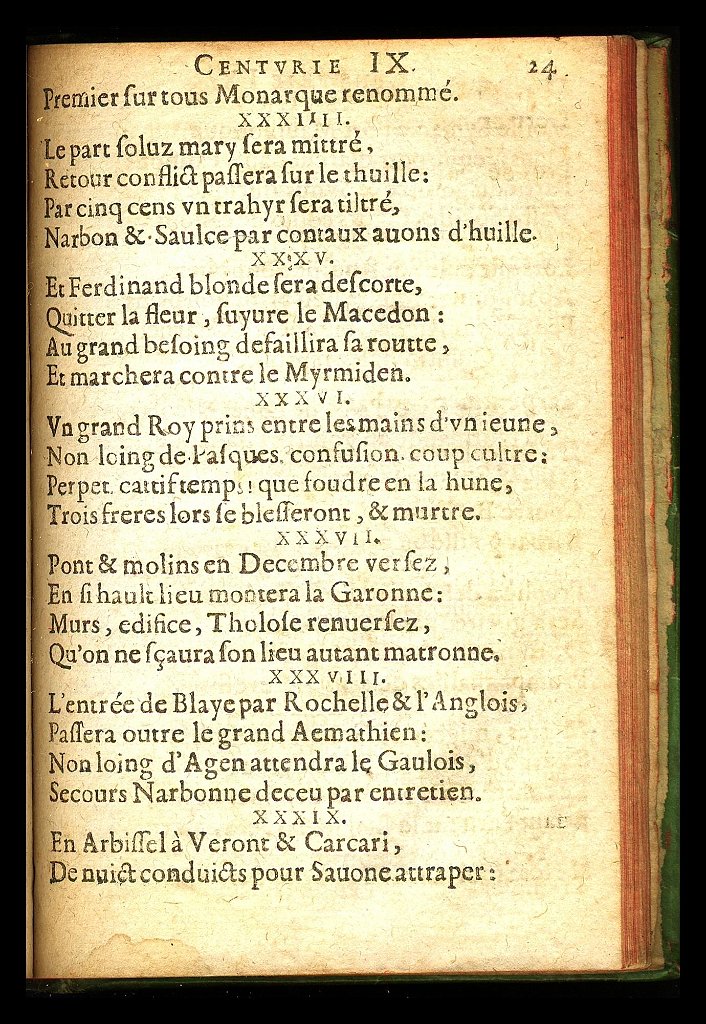 CENTVRIE IX.
24.
Premier ſur tous Monarque renommé.
XXXIIII.
Le part ſoluz mary ſera mittré,
Retour conflict paſſera ſur le thuille:
Par cinq cens vn trahyr ſera tiltré,
Narbon & Saulce par contaux auons d'huille.
XXXV.
Et Ferdinand blonde ſera deſcorte,
Quitter la fleur, ſuyure le Macedon:
Au grand beſoing defaillira ſa routte,
Et marchera contre le Myrmiden.
XXXVI.
Vn grand Roy prins entre les mains d'vn ieune,
Non loing de Paſques. confuſion. coup cultre:
Perpet. cattif temps! que foudre en la hune,
Trois freres lors ſe bleſſeront, & murtre.
XXXVII.
Pont & molins en Decembre verſez,
En ſi hault lieu montera la Garonne:
Murs, edifice, Tholoſe renuerſez,
Qu'on ne ſçaura ſon lieu autant matronne.
XXXVIII.
L'entrée de Blaye par Rochelle & l'Anglois,
Paſſera outre le grand Aemathien:
Non loing d'Agen attendra le Gaulois,
Secours Narbonne deceu par entretien.
XXXIX.
En Arbiſſel à Veront & Carcari,
De nuict conduicts pour Sauone attraper: